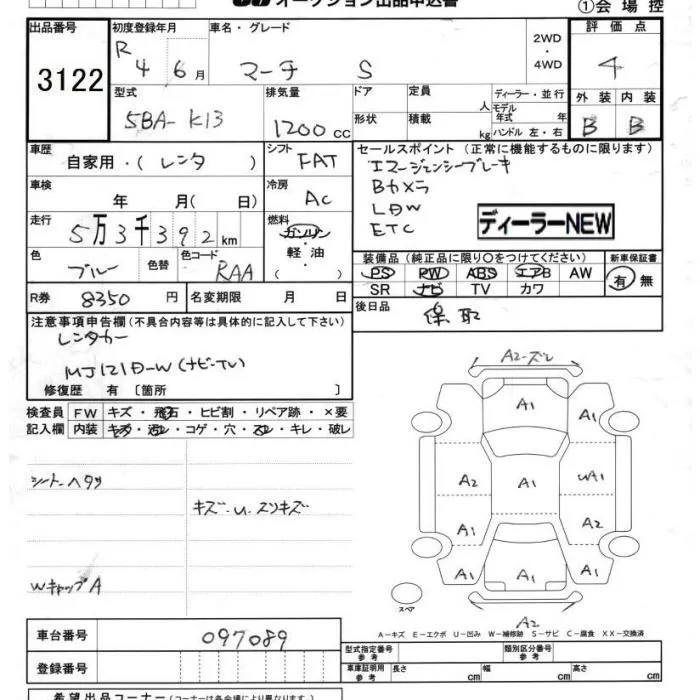 オークション出品申込書
①会場 控
出品番号
3122
初度登録年月
R 4 6月
車名・グレード
マーチ S
2WD
・
4WD
評価点
4
型式
5BA-K13
排気量
1200cc
ドア
定員 人
形状
積載 kg
ディーラー・並行
モデル年式 年
ハンドル 左・右
外装
B
内装
B
車歴
自家用・(レンタ)
シフト
FAT
セールスポイント(正常に機能するものに限ります)
エマージェンシーブレーキ
Bカメラ
LDW
ETC
ディーラーNEW
車検
年 月( 日)
冷房
AC
走行
5万3千392km
燃料
ガソリン
軽・油
( )
色
ブルー
色替
色コード
RAA
装備品(純正品に限り○をつけてください)
PS PW ABS エアB AW
SR ナビ TV カワ
新車保証書
有 無
R券
8350円
名変期限 月 日
後日品
保、取
注意事項申告欄(不具合内容等は具体的に記入して下さい)
レンタカー
MJ121D-W(ナビ-TV)
修復歴 有 〔箇所 〕
検査員
記入欄
FW キズ・飛石・ヒビ割・リペア跡・×要
内装 キズ・汚レ・コゲ・穴・スレ・キレ・破レ
シートヘタリ
キズ・U、スリキズ
WキャップA
A2-ズレ
A1
A1 A1
A2 A1 WA1
A1 A2
A1 A1 A1
スペア
A2
A-キズ E-エクボ U-凹み W-補修跡 S-サビ C-腐食 XX-交換済
車台番号
097089
登録番号
型式指定番号
参考
類別区分番号
参考
車庫証明用
参考
長さ cm
幅 cm
高さ cm
希望出品コーナー(コーナーは各会場により異なります。)